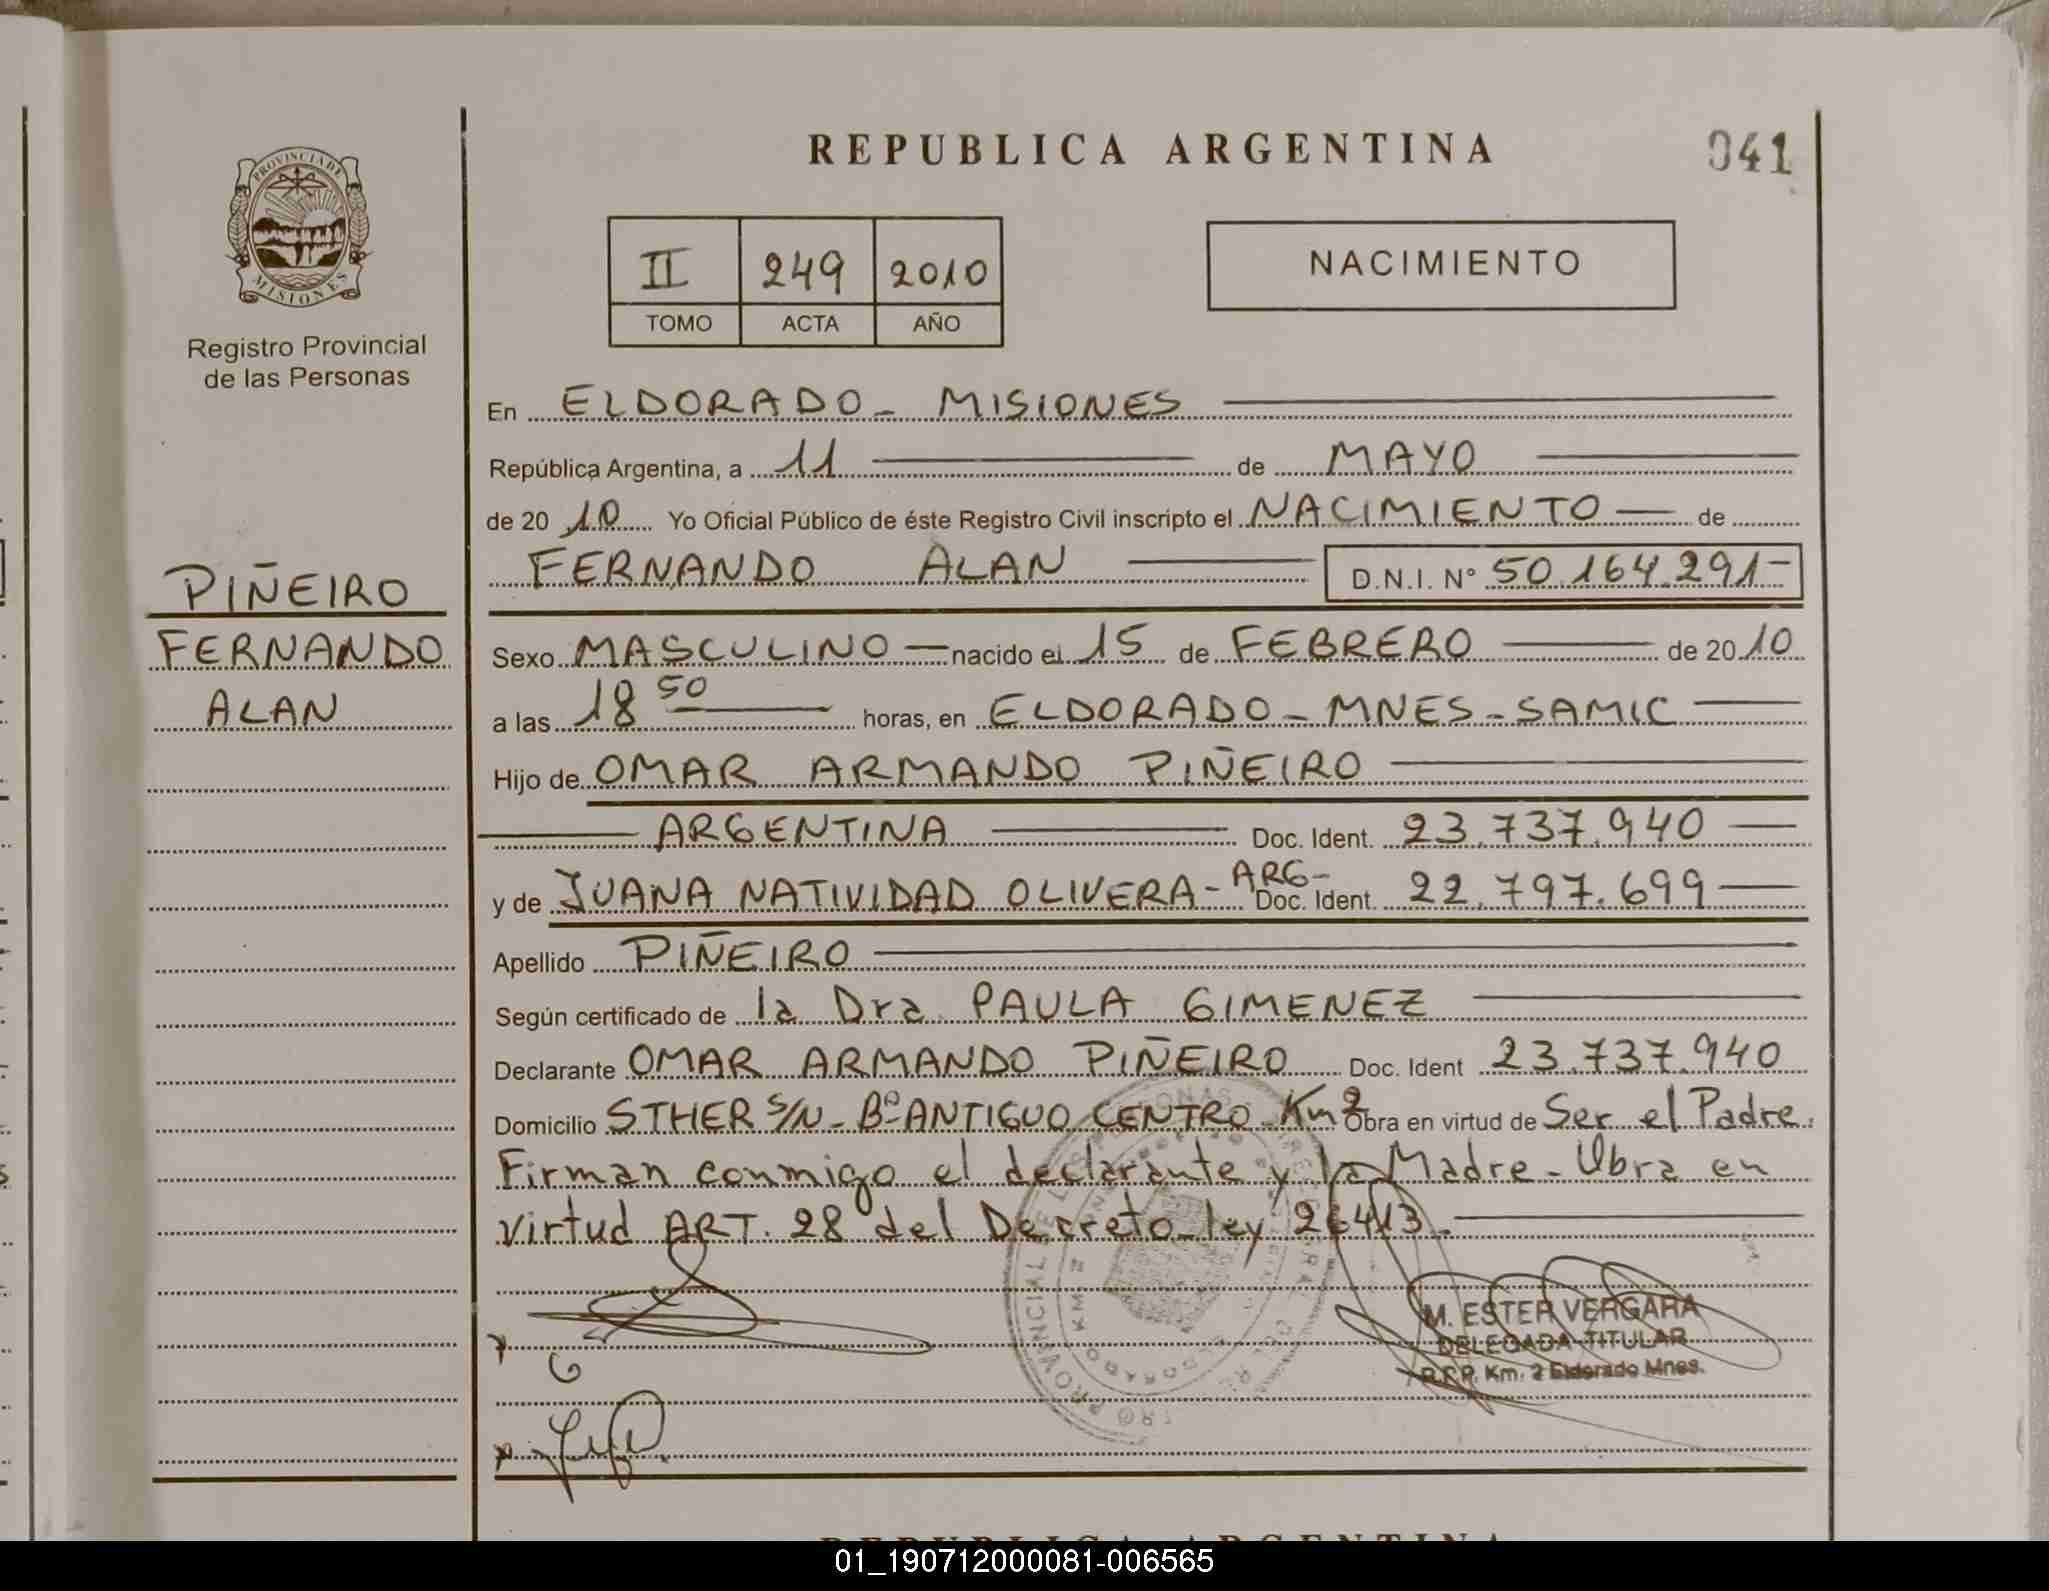 REPUBLICA ARGENTINA
041
PROVINCIA DE
MISIONES
Registro Provincial
de las Personas
II 249 2010
TOMO ACTA AÑO
NACIMIENTO
En ELDORADO - MISIONES
República Argentina, a 11 de MAYO
de 20 10 Yo Oficial Público de éste Registro Civil inscripto el NACIMIENTO de
FERNANDO ALAN D.N.I. N° 50.164.291-
PIÑEIRO
FERNANDO
ALAN
Sexo MASCULINO nacido el 15 de FEBRERO de 20 10
a las 18 50 horas, en ELDORADO - MNES - SAMIC
Hijo de OMAR ARMANDO PIÑEIRO
ARGENTINA Doc. Ident. 23.737.940
y de JUANA NATIVIDAD OLIVERA - ARG- Doc. Ident. 22.797.699
Apellido PIÑEIRO
Según certificado de la Dra. PAULA GIMENEZ
Declarante OMAR ARMANDO PIÑEIRO Doc. Ident 23.737.940
Domicilio STHER S/N - Bº ANTIGUO CENTRO Km 2 Obra en virtud de Ser el Padre.
Firman conmigo el declarante y la Madre - Obra en
virtud ART. 28 del Decreto ley 26413.
M. ESTER VERGARA
DELEGADA TITULAR
R.P.P. Km. 2 Eldorado Mnes.
REPUBLICA ARGENTINA
01_190712000081-006565